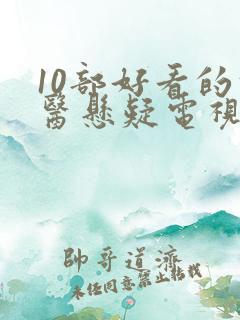 10部好看的
醫懸疑電視
帥哥道濟
未任同意禁止転載